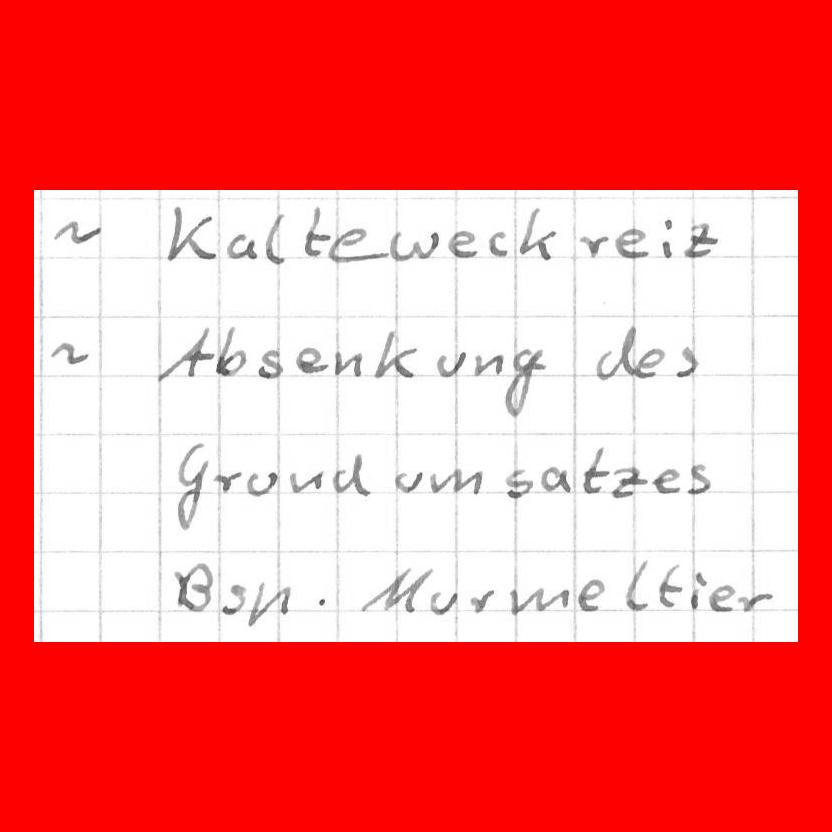 ~ Kalteweckreiz
~ Absenkung des
Grundumsatzes
Bsp. Murmeltier